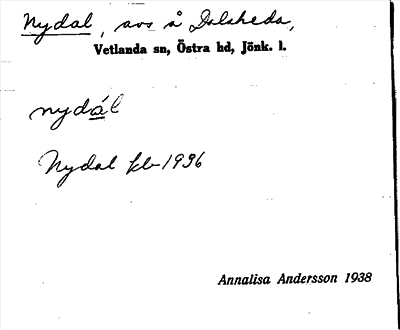 Nydal, avs å Dalsheda,
Vetlanda sn, Östra hd, Jönk. l.
nydál
Nydal kb 1936
Annalisa Andersson 1938